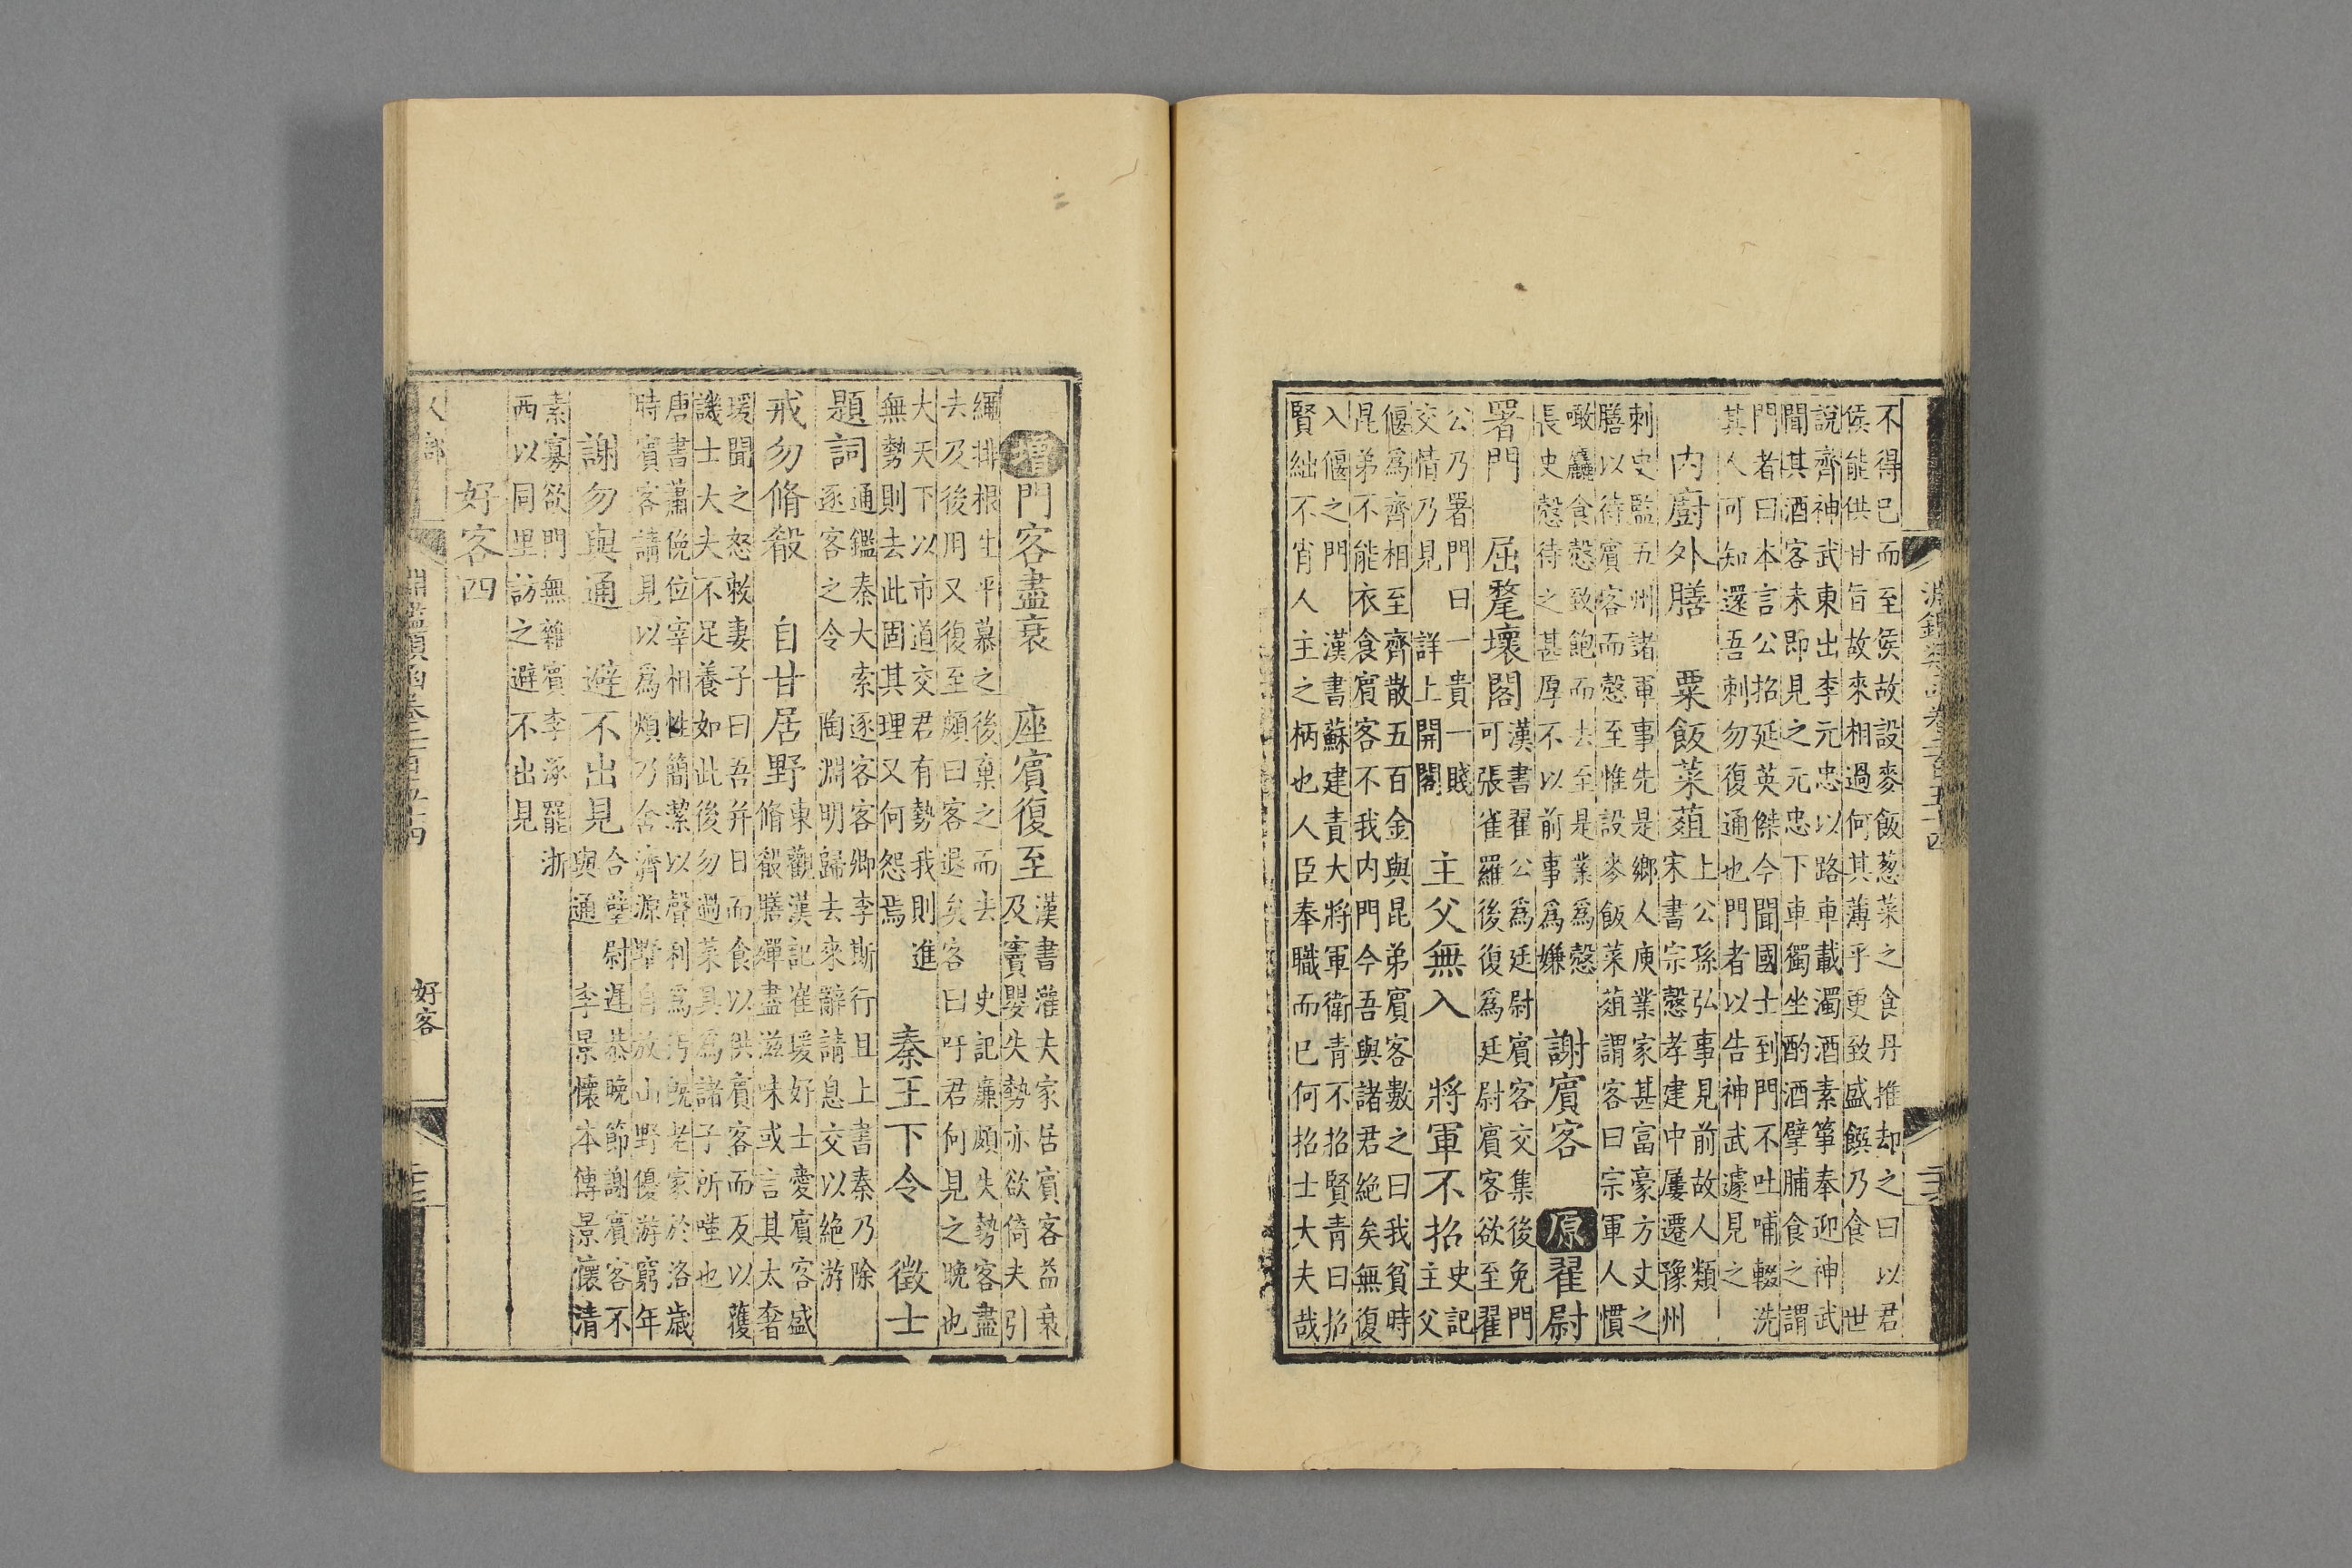 不得已而至侯故設麥飯葱菜之食丹推却之曰以君
侯能供甘旨故來相過何其薄乎更致盛饌乃食 世
說齊神武東出李元忠以路車載濁酒素箏奉迎神武
聞其酒客未即見之元忠下車獨坐酌酒擘脯食之謂
門者曰本言公招延英傑今聞國士到門不吐哺輟洗
其人可知還吾刺勿復通也門者以告神武遽見之
内廚外膳 粟飯菜葅
上公孫弘事見前故人類
宋書宗慤孝建中屢遷豫州
刺史監五州諸軍事先是鄉人庾業家甚富豪方丈之
膳以待賓客而慤至惟設麥飯菜葅謂客曰宗軍人慣
噉麤食慤致飽而去至是業爲慤
長史慤待之甚厚不以前事爲嫌
謝賓客 原翟尉
署門 屈氂壞閣
漢書翟公爲廷尉賓客交集後免門
可張雀羅後復爲廷尉賓客欲至翟
公乃署門曰一貴一賤
交情乃見 詳上開閣
主父無入 將軍不招
史記
主父
偃爲齊相至齊散五百金與昆弟賓客數之曰我貧時
昆弟不能衣食賓客不我内門今吾與諸君絶矣無復
入偃之門 漢書蘇建責大將軍衛青不招賢青曰招
賢絀不肖人主之柄也人臣奉職而已何招士大夫哉
增門客盡衰 座賓復至
漢書灌夫家居賓客益衰
及竇嬰失勢亦欲倚夫引
繩排根生平慕之後棄之而去 史記廉頗失勢客盡
去及後用又復至頗曰客退矣客曰吁君何見之晚也
夫天下以市道交君有勢我則進
無勢則去此固其理又何怨焉
秦王下令 徵士
題詞
通鑑秦大索逐客客卿李斯行且上書秦乃除
逐客之令 陶淵明歸去來辭請息交以絶游
戒勿脩殽 自甘居野
東觀漢記崔瑗好士愛賓客盛
脩殽膳殫盡滋味或言其太奢
瑗聞之怒敕妻子曰吾并日而食以供賓客而反以獲
譏士大夫不足養如此後勿過菜具爲諸子所嗤也
唐書蕭俛位宰相性簡潔以聲利爲汚既老家於洛歲
時賓客請見以爲煩乃舍濟源墅自放山野優游窮年
謝勿與通 避不出見
合璧尉遲恭晚節謝賓客不
與通 李景懷本傳景懷清
素寡欲門無雜賓李涿罷浙
西以同里訪之避不出見
好客四
好客